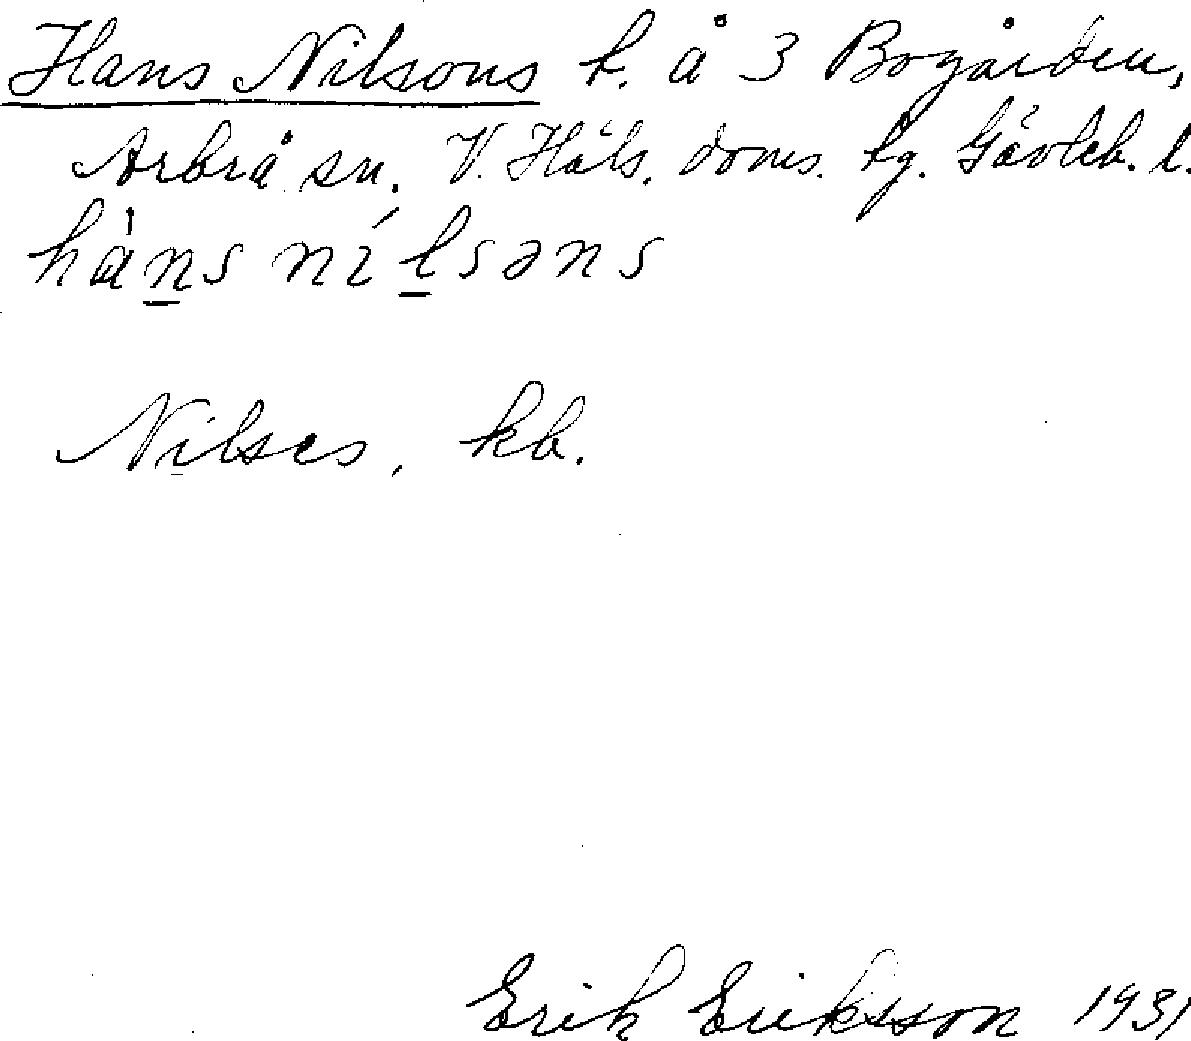 Hans Nilsons h. å 3 Bogården,
Arbrå sn. V. Häls. doms. fg. Gävleb. l.
hàn̲s níl̲səns
Nilses, kb.
Erik Eriksson 1931